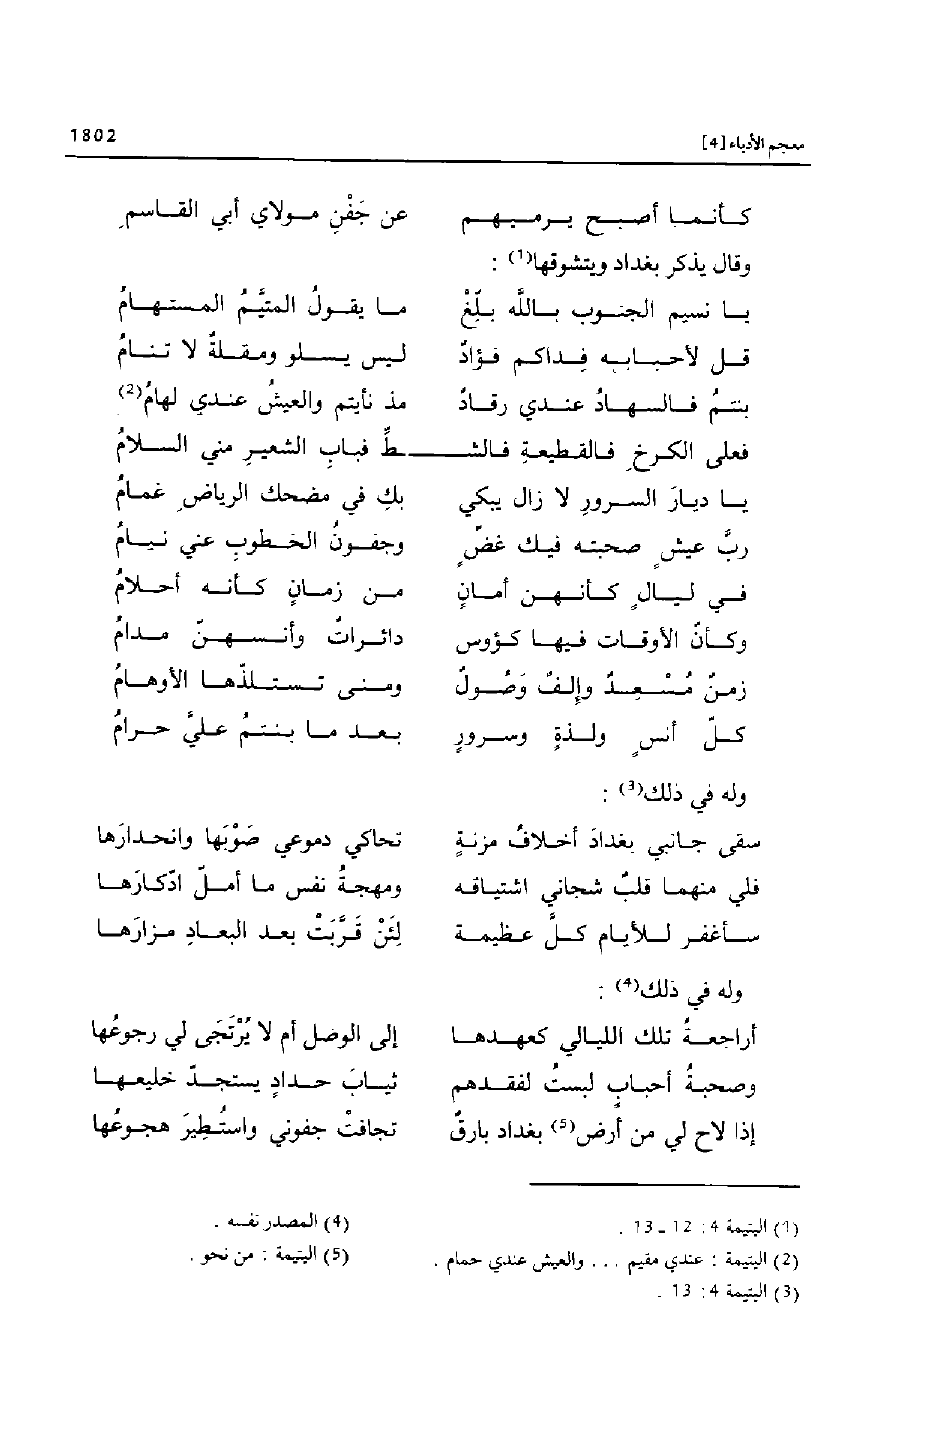 معجم الأدباء [4] 1802
كأنما أصبح يرميهم عن جَفْنِ مولاي أبي القاسمِ
وقال يذكر بغداد ويتشوقها(1) :
يا نسيم الجنوب باللّه بلِّغْ ما يقولُ المتيَّمُ المستهامُ
قل لأحبابه فداكم فؤادٌ ليس يسلو ومقلةٌ لا تنامُ
بنتمُ فالسهادُ عندي رقادٌ مذ نأيتم والعيشُ عندي لهامُ(2)
فعلى الكرخِ فالقطيعةِ فالشطِّ فبابِ الشعيرِ مني السلامُ
يا ديارَ السرورِ لا زال يبكي بكِ في مضحك الرياضِ غمامُ
ربَّ عيشٍ صحبته فيك غضٍّ وجفونُ الخطوبِ عني نيامُ
في ليالٍ كأنهن أمانٍ من زمانٍ كأنه أحلامُ
وكأنّ الأوقات فيها كؤوس دائراتٌ وأنسهنّ مدامُ
زمنٌ مُسْعِدٌ وإلفٌ وَصُولٌ ومنى تستلذّها الأوهامُ
كلّ أنسٍ ولذةٍ وسرورٍ بعد ما بنتمُ عليَّ حرامُ
وله في ذلك(3) :
سقى جانبي بغدادَ أخلافُ مزنةٍ تحاكي دموعي صَوْبَها وانحدارَها
فلي منهما قلبٌ شجاني اشتياقه ومهجةُ نفس ما أملّ ادّكارَها
سأغفر للأيام كلَّ عظيمة لِئَنْ قَرَّبَتْ بعد البعادِ مزارَها
وله في ذلك(4) :
أراجعةٌ تلك الليالي كعهدها إلى الوصل أم لا يُرْتَجَى لي رجوعُها
وصحبةُ أحبابٍ لبستُ لفقدهم ثيابَ حدادٍ يستجدّ خليعها
إذا لاح لي من أرض(5) بغداد بارقٌ تجافتْ جفوني واستُطِيرَ هجوعُها
(1) اليتيمة 4: 12 ـ 13 .
(2) اليتيمة : عندي مقيم . . . والعيش عندي حمام .
(3) اليتيمة 4: 13 .
(4) المصدر نفسه .
(5) اليتيمة : من نحو .